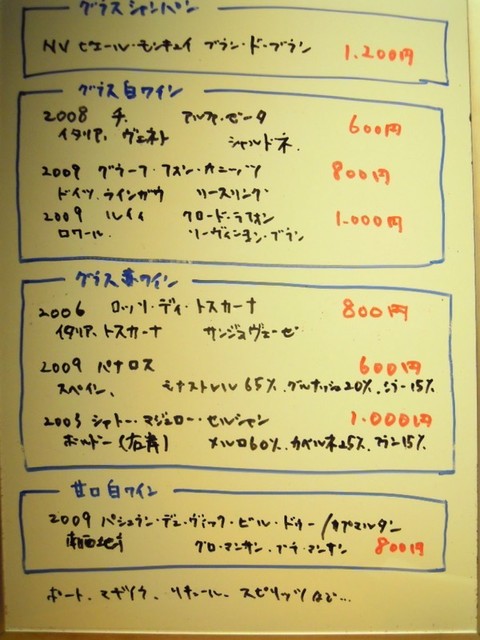 グラスシャンパン
NV ピエール・モンキュイ ブラン・ド・ブラン 1.200円
グラス白ワイン
2008 チ. アルファ・ゼータ 600円
イタリア、ヴェネト シャルドネ.
2009 グラーフ・フォン・カニッツ 800円
ドイツ.ラインガウ リースリング
2009 ルイィ クロード・ラフォン 1.000円
ロワール. ソーヴィニヨン・ブラン
グラス赤ワイン
2006 ロッソ・ディ・トスカーナ 800円
イタリア、トスカーナ サンジョヴェーゼ
2009 パナロス 600円
スペイン、 モナストレル65%.グルナッシュ20%.シラー15%
2003 シャトー・マジュロー・セルシャン 1.000円
ボルドー(右岸) メルロ60%.カベルネ25%.フラン15%
甘口白ワイン
2009 パシュラン・デュ・ヴィック・ビル・ドゥー/カプマルタン
南西地方 グロ・マンサン.プティ・マンサン 800円
ポート、マディラ、リキュール、スピリッツなど…